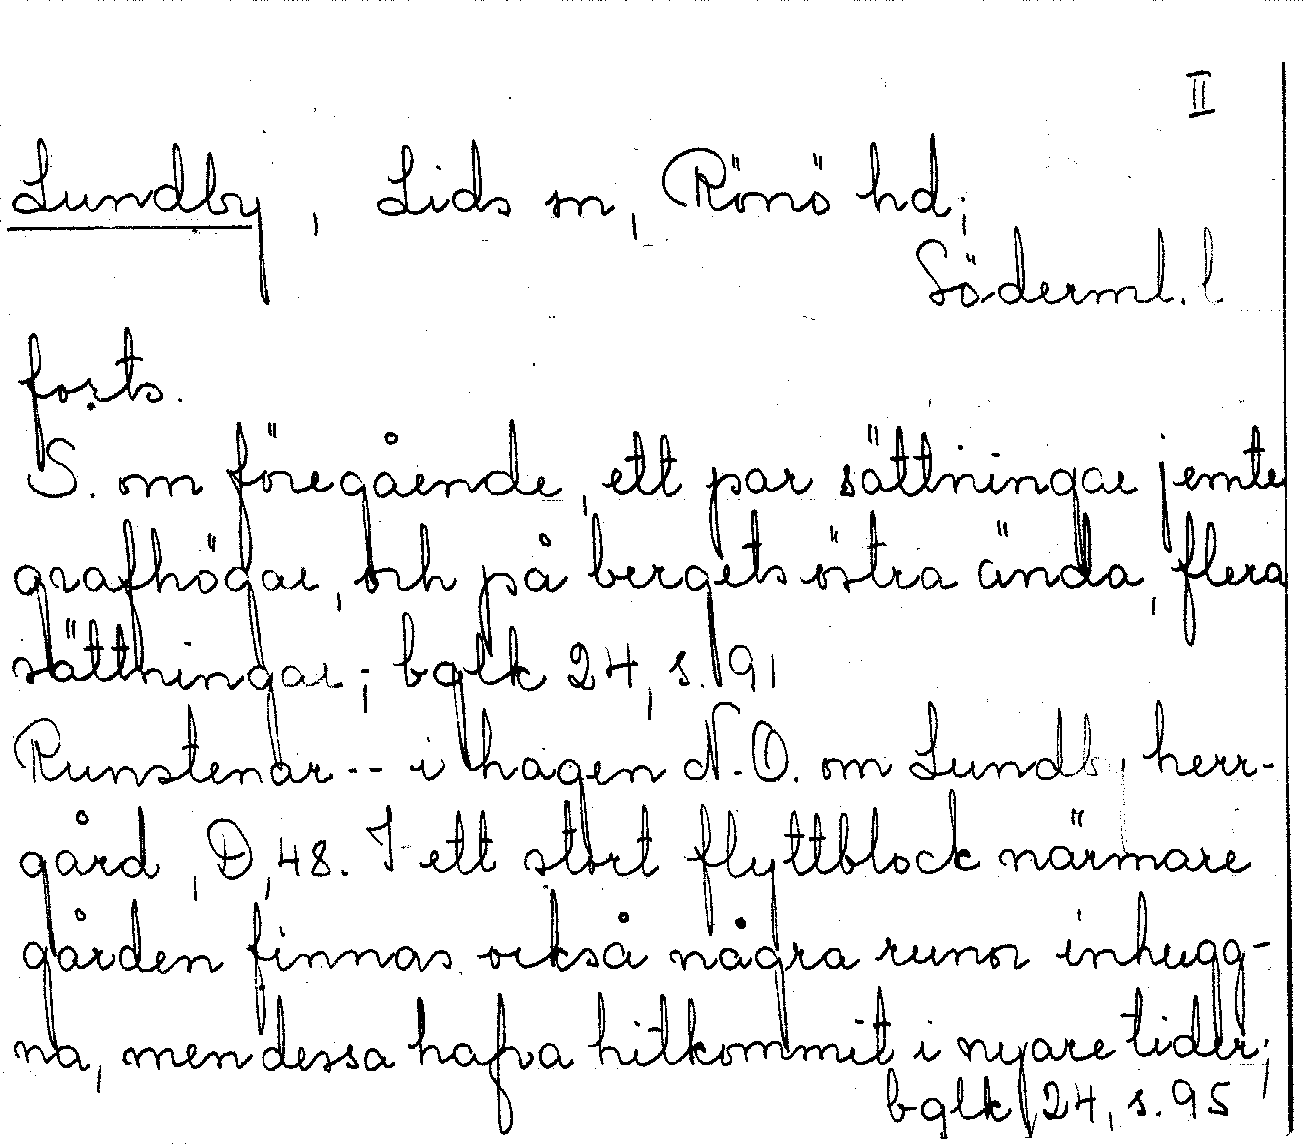 II
Lundby, Lids sn, Rönö hd;
Söderml. l
forts.
S. om föregående, ett par sättningar jemte
grafhögar, och på bergets östra ända, flera
sättningar; bglk 24, s. 91
Runstenar -- i hagen N.O. om Lundby herr-
gård, D, 48. I ett stort flyttblock närmare
gården finnas också några runor inhugg-
na, men dessa hafva hitkommit i nyare tider;
bglk 24, s. 95